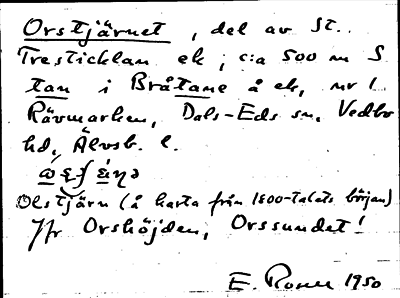 Orstjärnet, del av St.
Tresticklan ek, c:a 500 m S
tan i Bråtane å ek, nr 1
Rävmarken, Dals-Eds sn, Vedbo
hd, Älvsb. l.
Olstjärn (å karta från 1800-talets början)
Jfr Orshöjden, Orssundet!
E. 1950